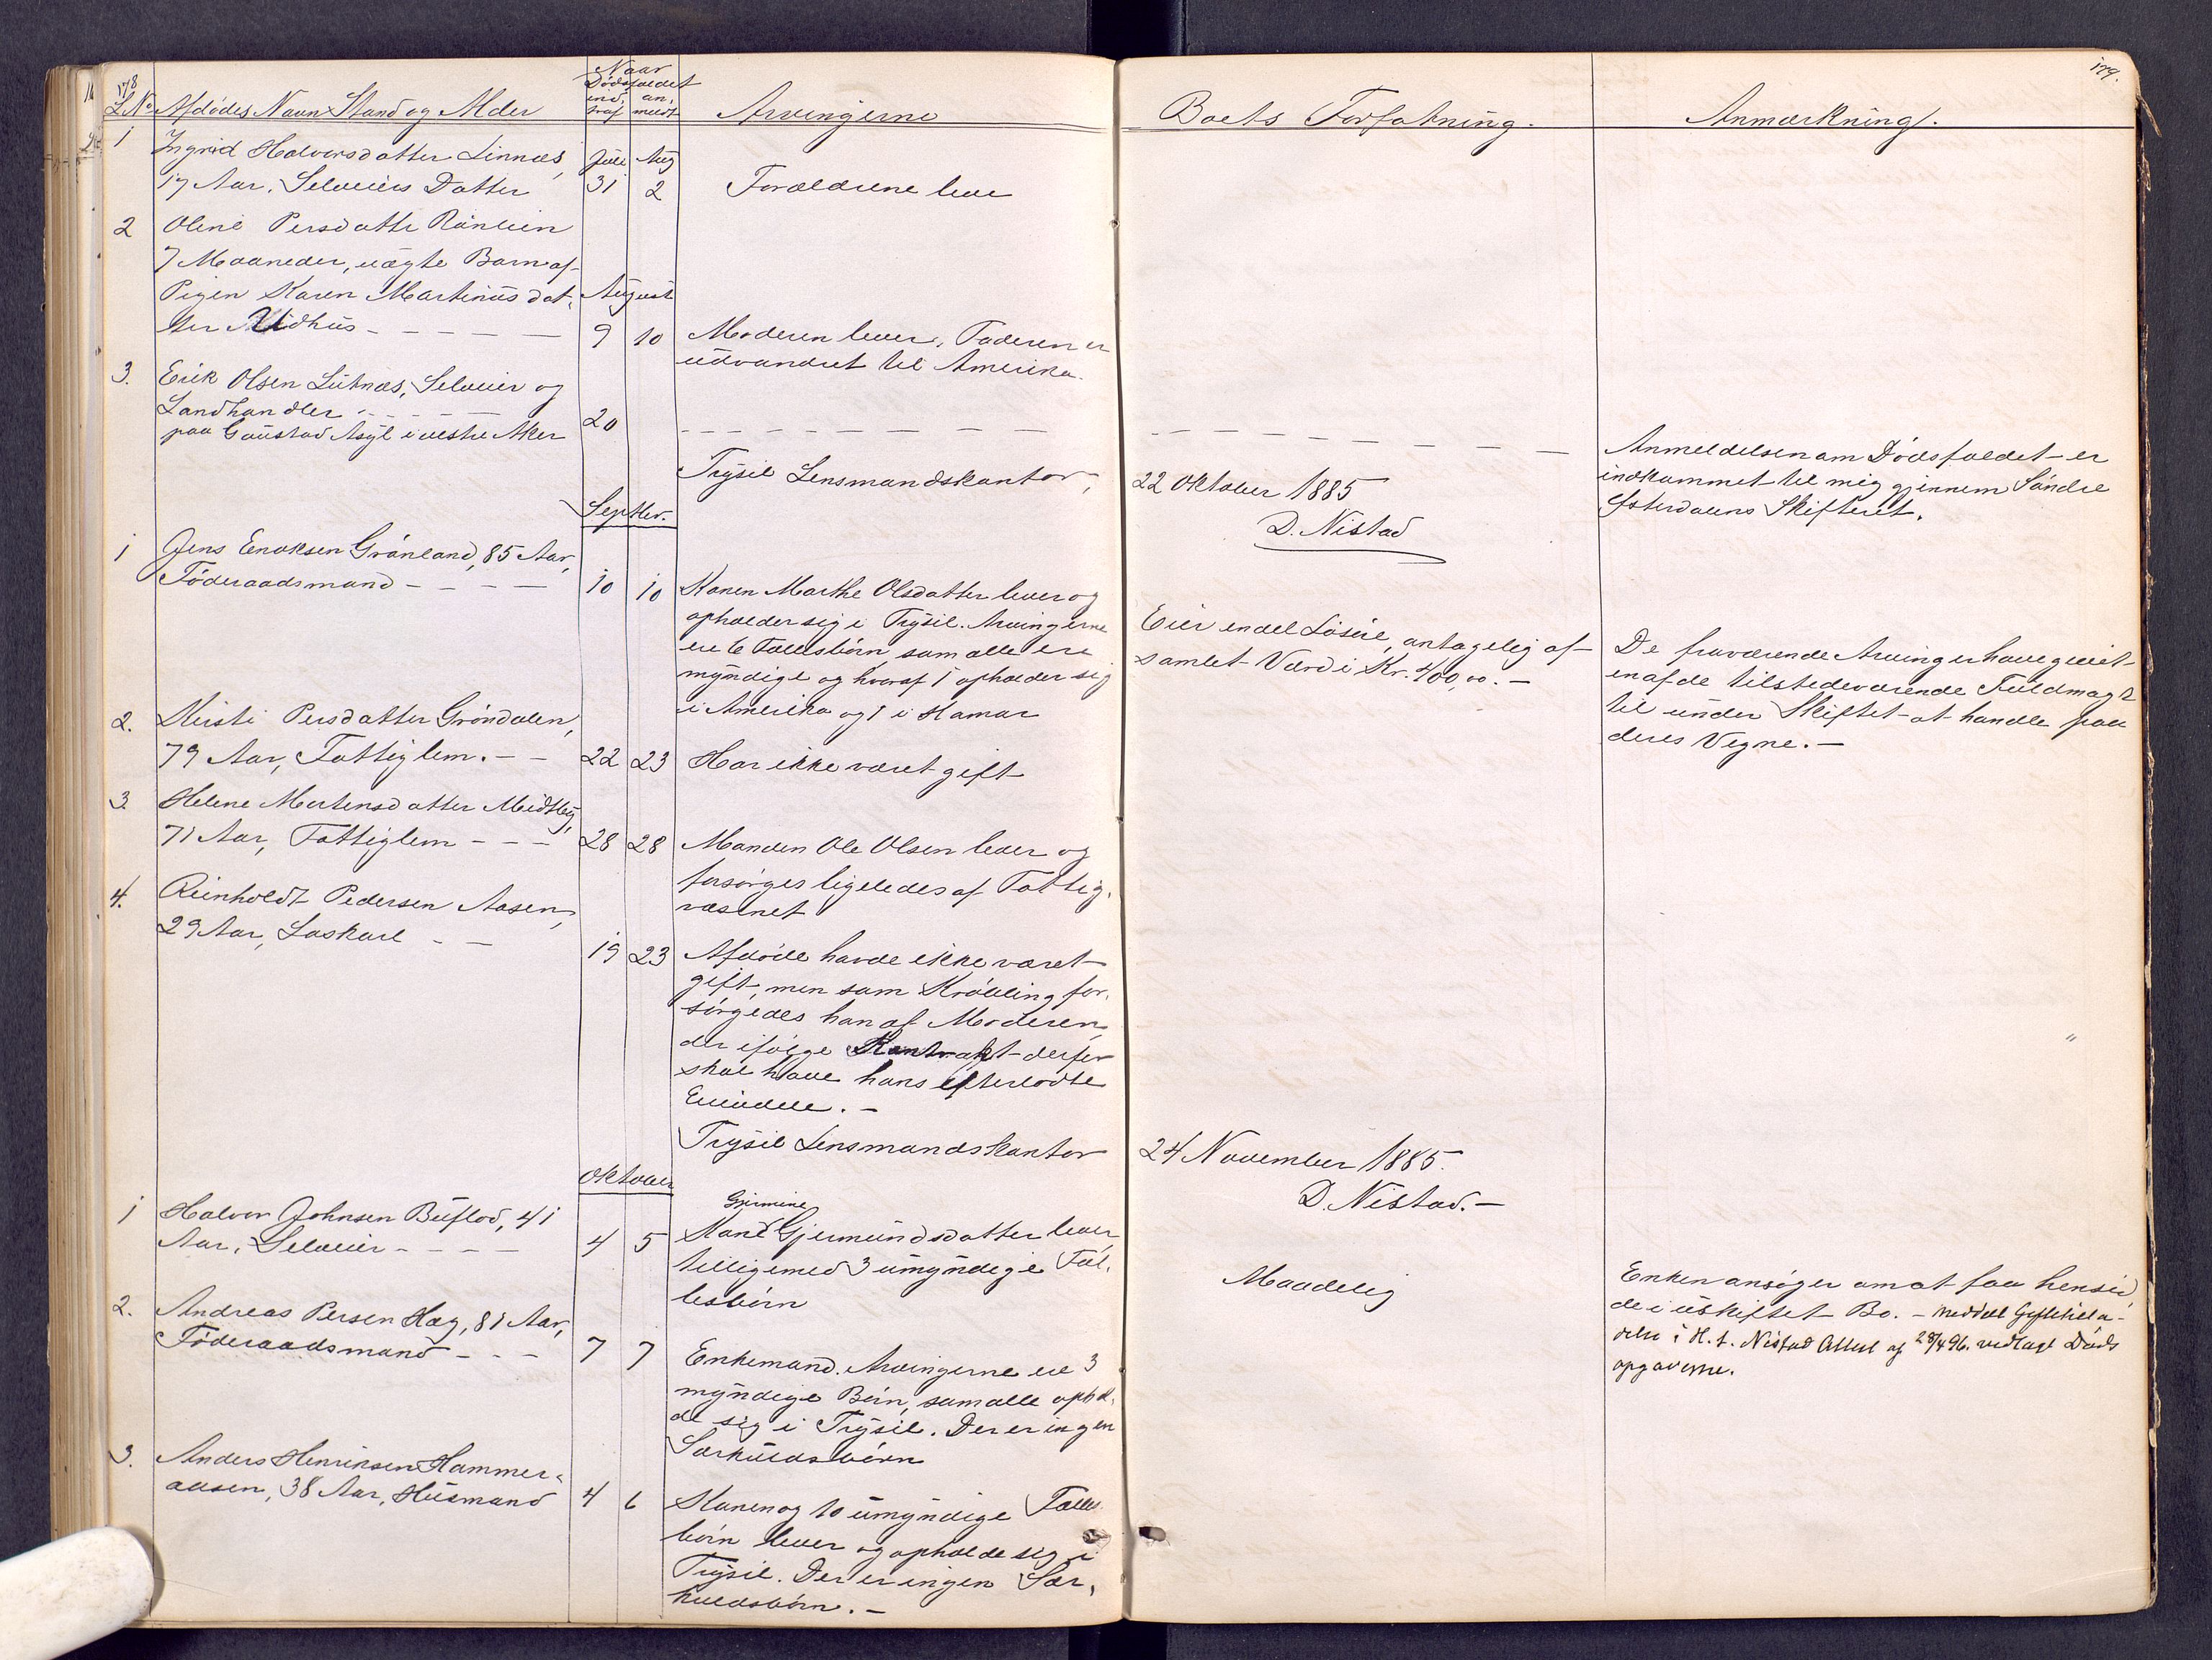 178
Naar
Dødsfaldet
L.No. Afdødes Navn Stand og Alder indtraf anmeldt Arvingerne
1 Ingrid Halvorsdatter Linnæs, Juli Aug
17 Aar, Selveiers Datter 31 2 Forældrene leve
2 Oline Persdatter Rönlien
7 Maaneder, uægte Barn af
Pigen Karen Martinusdat- August
ter Nidhus - - - - - 9 10 Moderen lever, Faderen er
udvandret til Amerika.
3. Erik Olsen Lutnæs, Selveier og
Landhandler - - - - 20
paa Gaustad Asyl i vestre Aker
Trysil Lensmandskontor,
Septbr.
1 Jens Enoksen Grönland, 85 Aar,
Föderaadsmand - - - - 10 10 Konen Marthe Olsdatter lever og
opholder sig i Trysil. Arvingerne
ere 6 Fællesbörn, som alle ere
myndige og hvoraf 1 opholder sig
i Amerika og 1 i Hamar
2. Kirsti Persdatter Gröndalen,
79 Aar, Fattiglem. - - 22 23 Har ikke været gift
3. Helene Mortensdatter Midtby,
71 Aar, Fattiglem - - - 28 28 Manden Ole Olsen lever og
forsörges ligeledes af Fattig-
væsenet
4. Reinholdt Pedersen Aasen,
29 Aar, Løskarl - - 19 23 Afdöde havde ikke været
gift, men som Kröbling for-
sörgedes han af Moderen,
der ifölge Kontrakt derfor
skal have hans efterladte
Eiendele. -
Trysil Lensmandskontor
Oktober
1 Halvor Johnsen Buflod, 41 Gurine
Aar, Selveier - - - - 4 5 Kone Gjermundsdatter lever,
tilligemed 3 umyndige Fæl-
lesbörn
2. Andreas Persen Hag, 81 Aar,
Föderaadsmand - - - 7 7 Enkemand. Arvingerne ere 3
myndige Börn, som alle ophol-
de sig i Trysil. Der er ingen
Særkuldsbörn
3. Anders Henriksen Hammer-
aasen, 38 Aar, Husmand 4 6 Konen og 10 umyndige Fælles-
börn lever og opholde sig i
Trysil. Der er ingen Sær-
kuldsbörn. -
179.
Boets Forfatning. Anmærkning.
Anmeldelsen om Dödsfaldet er
indkommet til mig gjennem Söndre
Østerdalens Skifteret.
22 Oktober 1885
D. Nistad
Eier endel Lösöre, antagelig af
samlet Værdi Kr. 400,00. -
De fraværende Arvinger have givet
en af de tilstedeværende Fuldmagt
til under Skiftet at handle paa
deres Vegne. -
24 November 1885.
D. Nistad. -
Maadelig
Enken ansöger om at faa hensid-
de i uskiftet Bo. -
H. t. Nistad Attest af 28/4 96. vedlagt Döds
opgaverne.